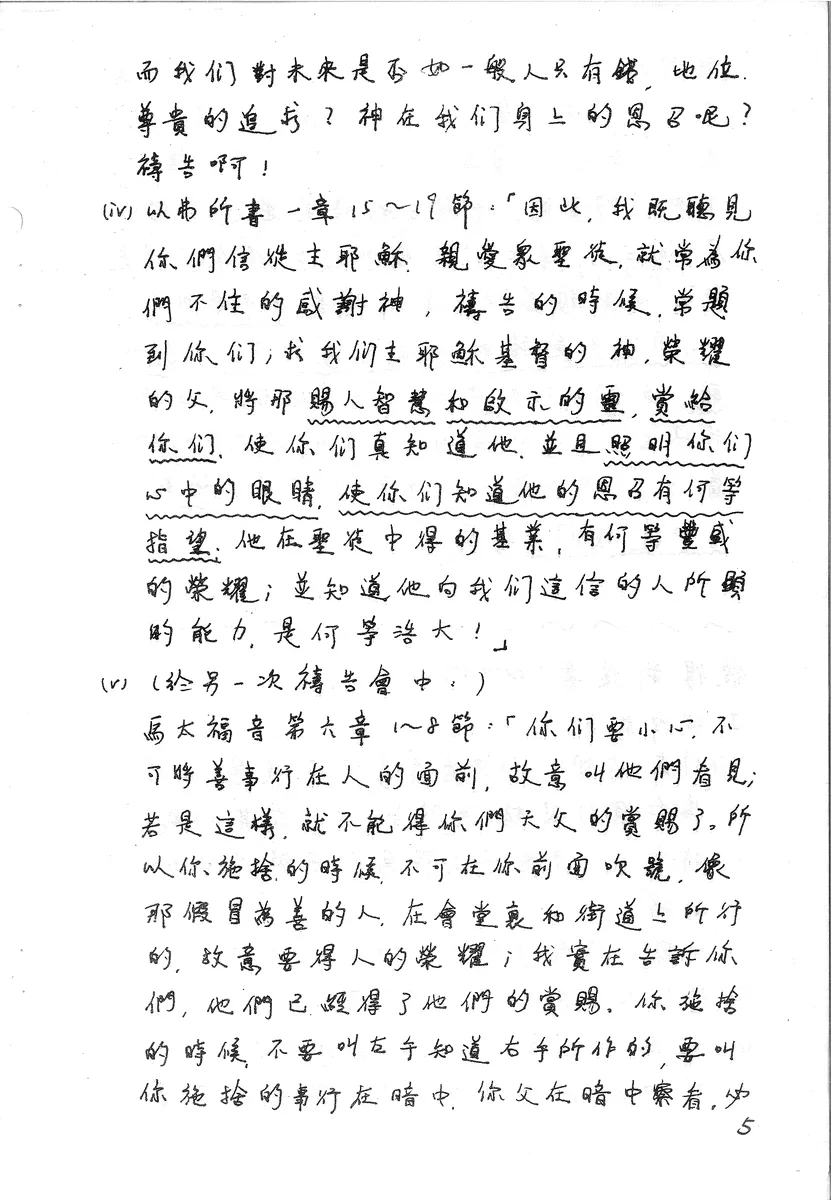 而我们對未來是否如一般人只有錢，地位.
尊貴的追求？神在我们身上的恩召呢？
禱告啊！
(iv) 以弗所書一章15～19節：「因此，我既聽見
你們信從主耶穌，親愛眾聖徒，就常為你
們不住的感謝神，禱告的時候，常題
到你们；求我们主耶穌基督的神，榮耀
的父，將那賜人智慧和啟示的靈，賞給
你们，使你们真知道他，並且照明你们
心中的眼睛，使你们知道他的恩召有何等
指望；他在聖徒中得的基業，有何等豐盛
的榮耀；並知道他向我们這信的人所顯
的能力，是何等浩大！」
(v) (於另一次禱告會中：)
馬太福音第六章1～8節：「你们要小心，不
可將善事行在人的面前，故意叫他們看見；
若是這樣，就不能得你們天父的賞賜了。所
以你施捨的時候，不可在你前面吹號，像
那假冒為善的人，在會堂裏和街道上所行
的，故意要得人的榮耀；我實在告訴你
們，他們已經得了他們的賞賜。你施捨
的時候，不要叫左手知道右手所作的，要叫
你施捨的事行在暗中，你父在暗中察看，必
5